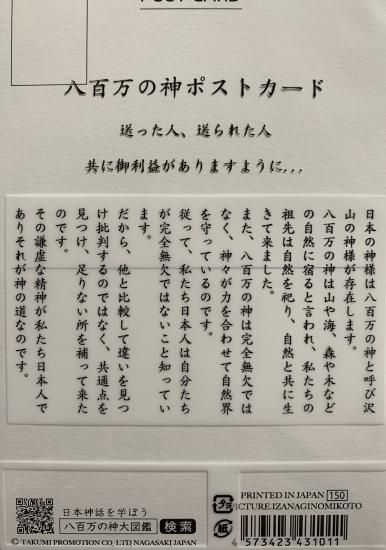 POST CARD
八百万の神ポストカード
送った人、送られた人
共に御利益がありますように...
日本の神様は八百万の神と呼び沢
山の神様が存在します。
八百万の神は山や海、森や木など
の自然に宿ると言われ、私たちの
祖先は自然を祀り、自然と共に生
きて来ました。
また、八百万の神は完全無欠では
なく、神々が力を合わせて自然界
を守っているのです。
従って、私たち日本人は自分たち
が完全無欠ではないこと知ってい
ます。
だから、他と比較して違いを見つ
け批判するのではなく、共通点を
見つけ、足りない所を補って来た
のです。
その謙虚な精神が私たち日本人で
ありそれが神の道なのです。
日本神話を学ぼう
八百万の神大図鑑 検索
© TAKUMI PROMOTION CO, LTD NAGASAKI JAPAN
プラ
紙
PRINTED IN JAPAN 150
PICTURE.IZANAGINOMIKOTO
4 573423 431011